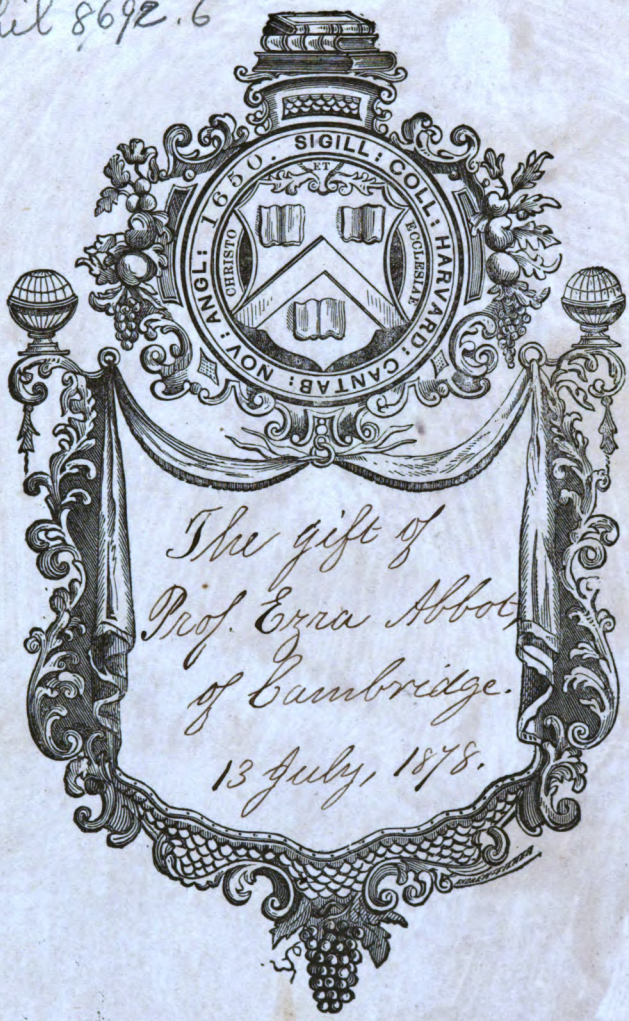 8692.6
SIGILL: COLL: HARVARD: CANTAB: NOV: ANGL: 1650.
CHRISTO ET ECCLESIAE
The gift of
Prof. Ezra Abbot,
of Cambridge.
13 July, 1878.